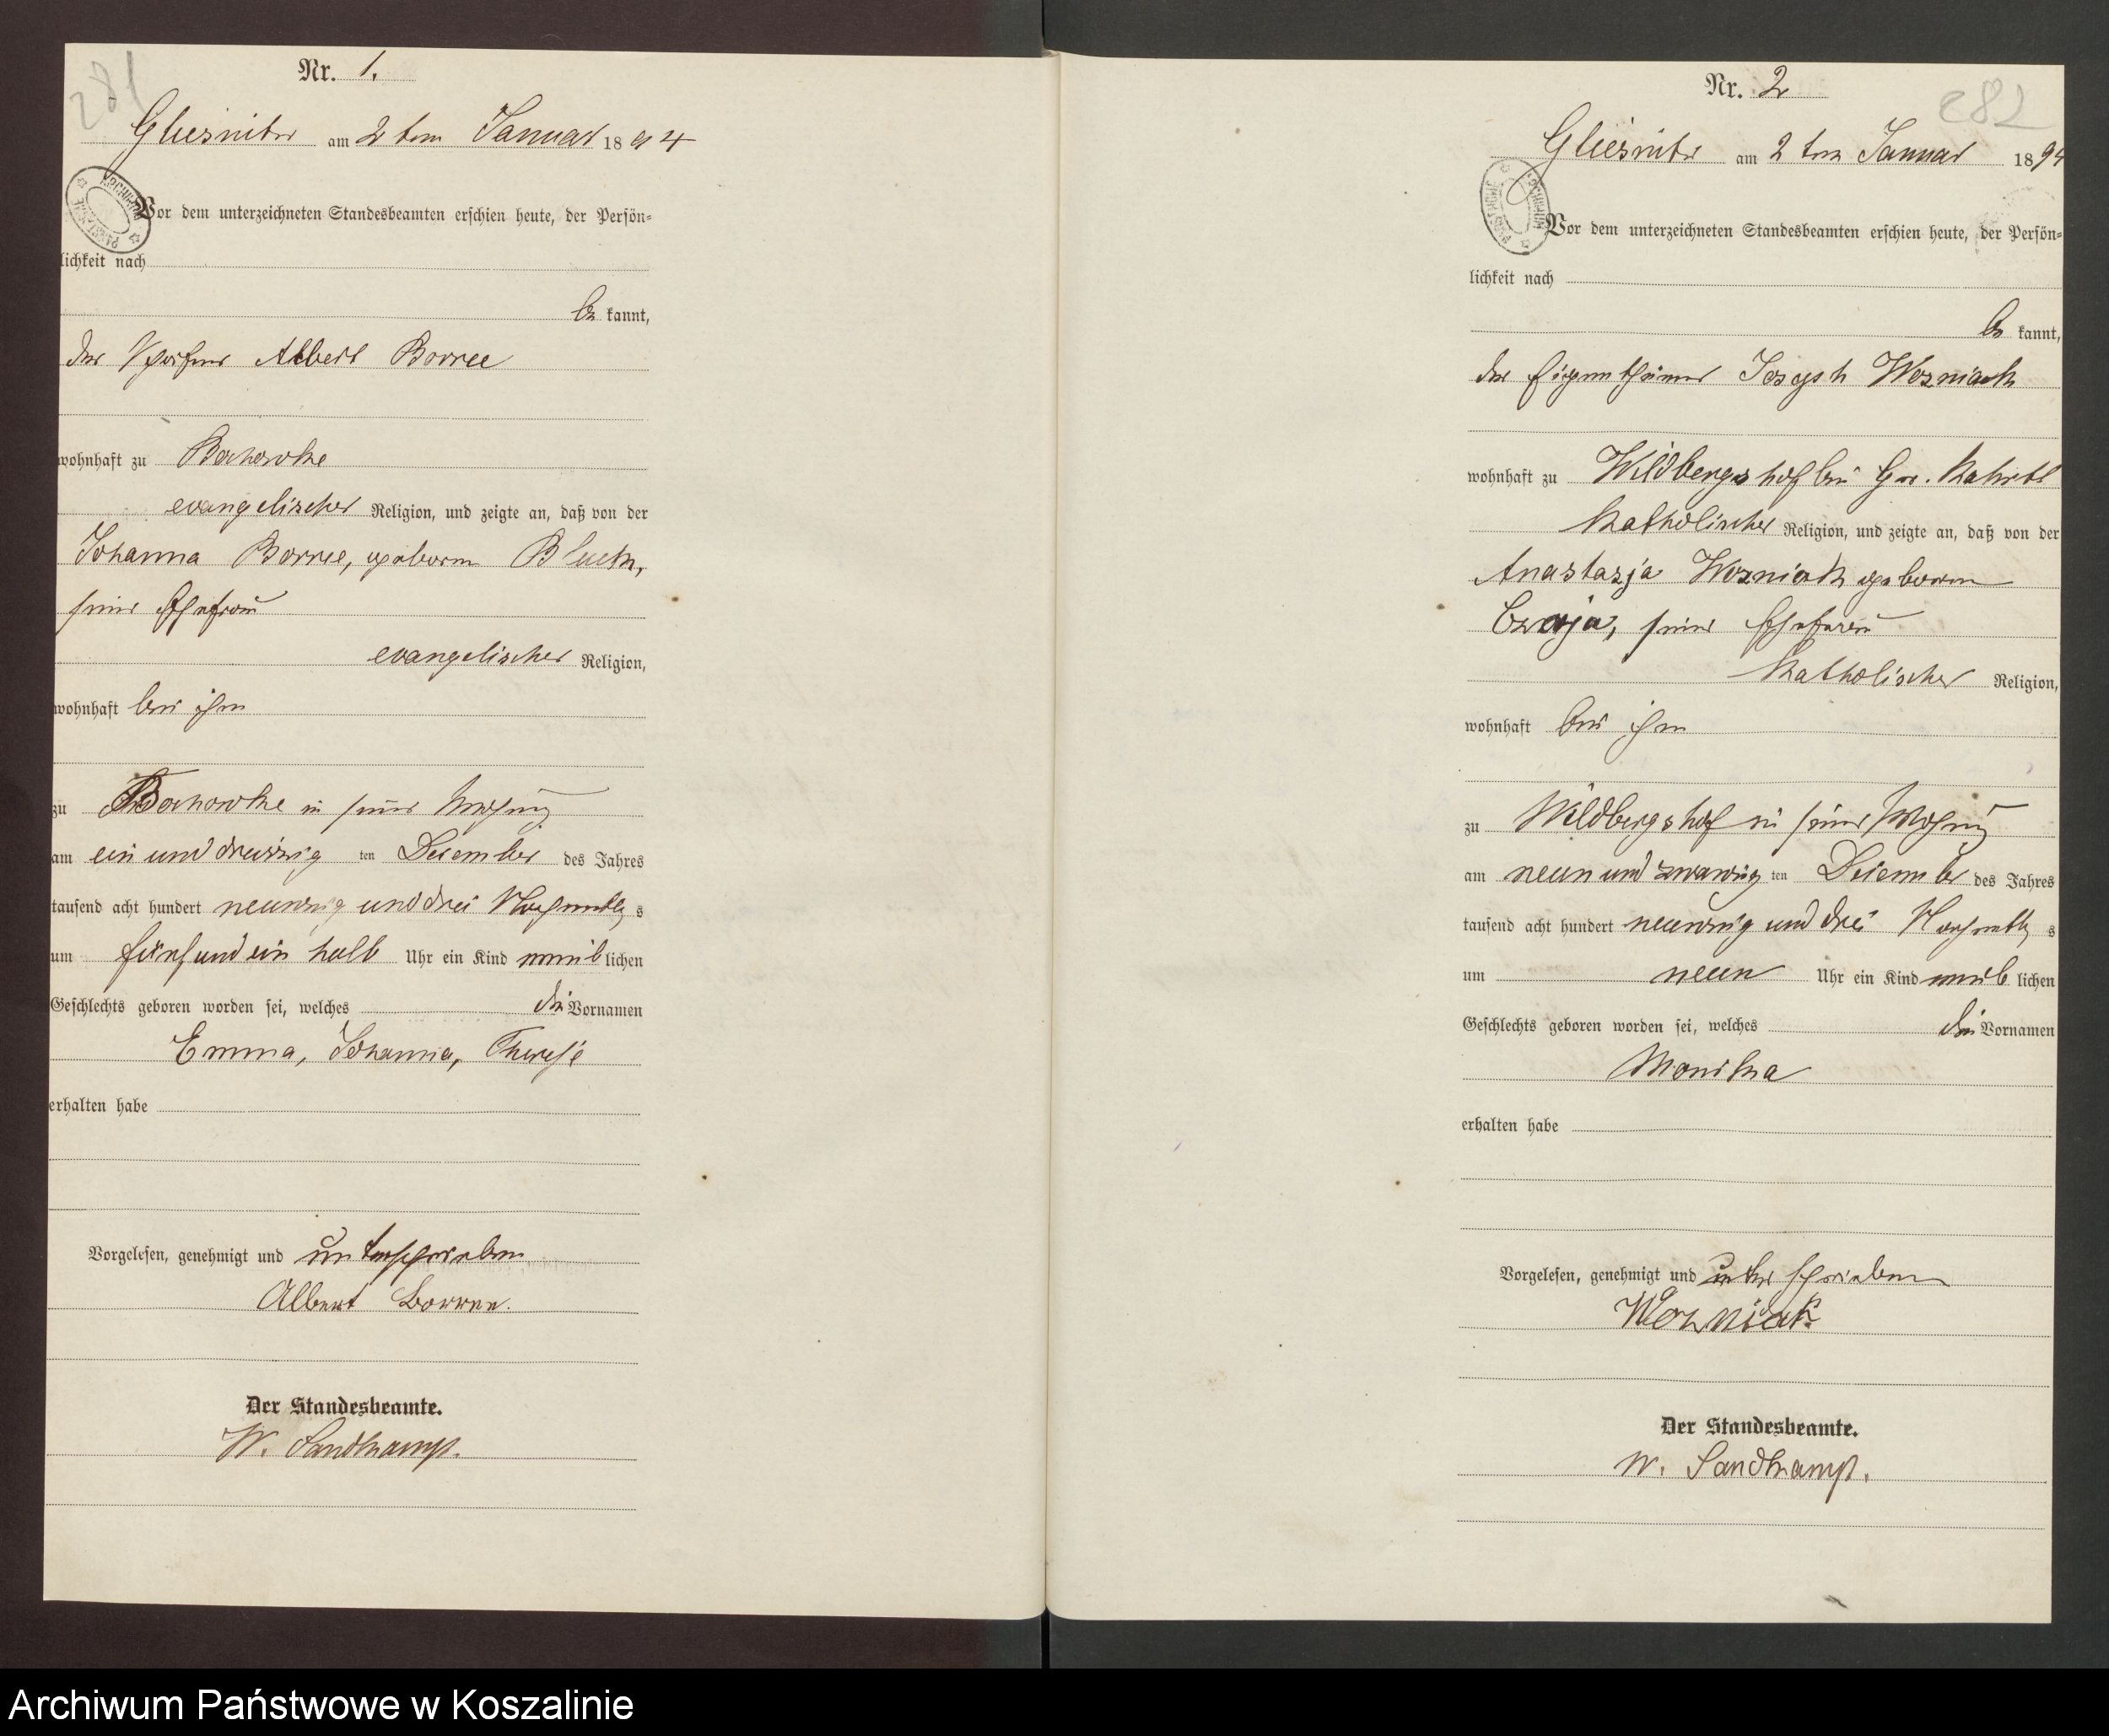 281
Nr. 1.
Gliesnitz am 2 ten Januar 1894
ARCHIWUM PAŃSTWOWE
Vor dem unterzeichneten Standesbeamten erschien heute, der Persön-
lichkeit nach
be kannt,
der Albert Borree
wohnhaft zu
evangelischer Religion, und zeigte an, daß von der
Johanna Borree, geborne Bluck,
seiner Ehefrau
evangelischer Religion,
wohnhaft bei ihm
zu in seiner Wohnung
am ein und dreissig ten Dezember des Jahres
tausend acht hundert neunzig und drei Nachmittags
um fünf und ein halb Uhr ein Kind weiblichen
Geschlechts geboren worden sei, welches die Vornamen
Emma, Johanna, Therese
erhalten habe
Vorgelesen, genehmigt und unterschrieben
Albert Borree.
Der Standesbeamte.
W. Sandkamp.
282
Nr. 2
Gliesnitz am 2 ten Januar 1894
ARCHIWUM PAŃSTWOWE
Vor dem unterzeichneten Standesbeamten erschien heute, der Persön-
lichkeit nach
be kannt,
der Eigenthümer Joseph Wozniack
wohnhaft zu Wildbergshof bei Gr.
katholischer Religion, und zeigte an, daß von der
Anastazja Wozniak geborne
Czaja, seiner Ehefrau
katholischer Religion,
wohnhaft bei ihm
zu Wildbergshof in seiner Wohnung
am neun und zwanzig ten Dezember des Jahres
tausend acht hundert neunzig und drei Nachmittags
um neun Uhr ein Kind weiblichen
Geschlechts geboren worden sei, welches die Vornamen
Monika
erhalten habe
Vorgelesen, genehmigt und unterschrieben
Wozniak
Der Standesbeamte.
W. Sandkamp.
Archiwum Państwowe w Koszalinie